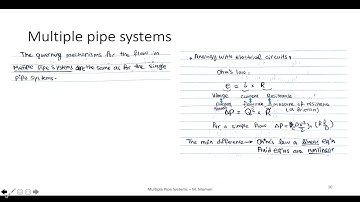 Multiple pipe systems
The governing mechanisms for the flow in
Multiple Pipe Systems are the same as for the single
Pipe systems.
• Analogy with electrical circuits.
Ohm's law:
e = i × R
Voltage current Resistance
flowrate measure of resistance
(or friction)
ΔP = Q² × R
For a simple flow
The main difference → Ohm's law a linear Eq'n
Fluid eq'ns are nonlinear
Multiple Pipe Systems – M. Maman